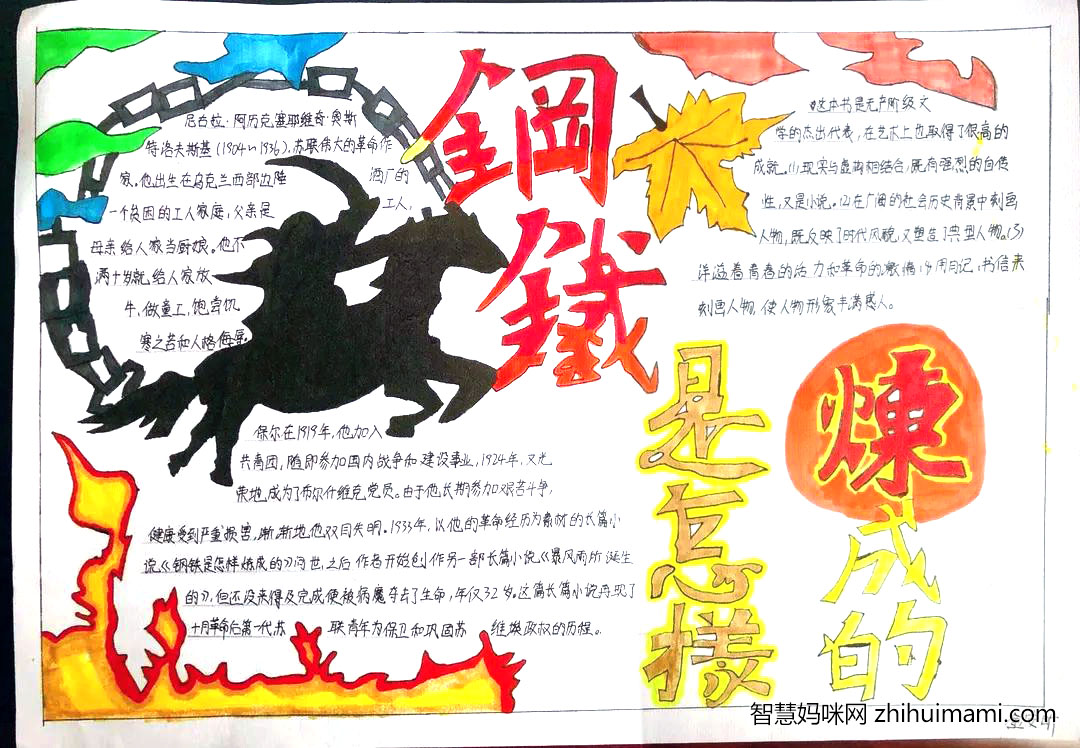 鋼鐵
是怎樣
煉成的
尼古拉·阿历克塞耶维奇·奥斯
特洛夫斯基(1904~1936),苏联伟大的革命作
家。他出生在乌克兰西部边陲
一个贫困的工人家庭,父亲是 酒厂的
工人,
母亲给人家当厨娘。他不
满十岁就给人家放
牛,做童工,饱尝饥
寒之苦和人格侮辱。
保尔在1919年,他加入
共青团,随即参加国内战争和建设事业,1924年,又光
荣地成为了布尔什维克党员。由于他长期参加艰苦斗争,
健康受到严重损害,渐渐地他双目失明。1933年,以他的革命经历为素材的长篇小
说《钢铁是怎样炼成的》问世,之后作者开始创作另一部长篇小说《暴风雨所诞生
的》,但还没来得及完成便被病魔夺去了生命,年仅32岁。这篇长篇小说再现了
十月革命后第一代苏 联青年为保卫和巩固苏 维埃政权的历程。
这本书是无产阶级文
学的杰出代表,在艺术上也取得了很高的
成就。(1)现实与虚构相结合,既有强烈的自传
性,又是小说。(2)在广阔的社会历史背景中刻画
人物,既反映了时代风貌,又塑造了典型人物。(3)
洋溢着青春的活力和革命的激情;(4)用日记,书信来
刻画人物,使人物形象丰满感人。
智慧妈咪网 zhihuimami.com